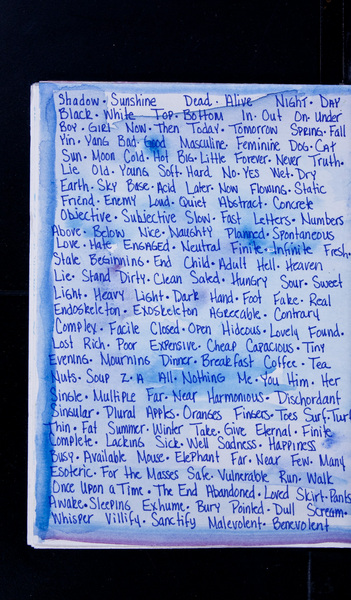 Shadow · Sunshine Dead · Alive Night · Day
Black · White Top · Bottom In · Out On · Under
Boy · Girl Now · Then Today · Tomorrow Spring · Fall
Yin · Yang Bad · Good Masculine · Feminine Dog · Cat
Sun · Moon Cold · Hot Big · Little Forever · Never Truth ·
Lie Old · Young Soft · Hard No · Yes Wet · Dry
Earth · Sky Base · Acid Later · Now Flowing · Static
Friend · Enemy Loud · Quiet Abstract · Concrete
Objective · Subjective Slow · Fast Letters · Numbers
Above · Below Nice · Naughty Planned · Spontaneous
Love · Hate Engaged · Neutral Finite · Infinite Fresh ·
Stale Beginning · End Child · Adult Hell · Heaven
Lie · Stand Dirty · Clean Sated · Hungry Sour · Sweet
Light · Heavy Light · Dark Hand · Foot Fake · Real
Endoskeleton · Exoskeleton Agreeable · Contrary
Complex · Facile Closed · Open Hideous · Lovely Found ·
Lost Rich · Poor Expensive · Cheap Capacious · Tiny
Evening · Mourning Dinner · Breakfast Coffee · Tea
Nuts · Soup Z · A All · Nothing Me · You Him · Her
Single · Multiple Far · Near Harmonious · Dischordant
Singular · Plural Apples · Oranges Fingers · Toes Surf · Turf
Thin · Fat Summer · Winter Take · Give Eternal · Finite
Complete · Lacking Sick · Well Sadness · Happiness
Busy · Available Mouse · Elephant Far · Near Few · Many
Esoteric · For the Masses Safe · Vulnerable Run · Walk
Once Upon a Time · The End Abandoned · Loved Skirt · Pants
Awake · Sleeping Exhume · Bury Pointed · Dull Scream ·
Whisper Villify · Sanctify Malevolent · Benevolent